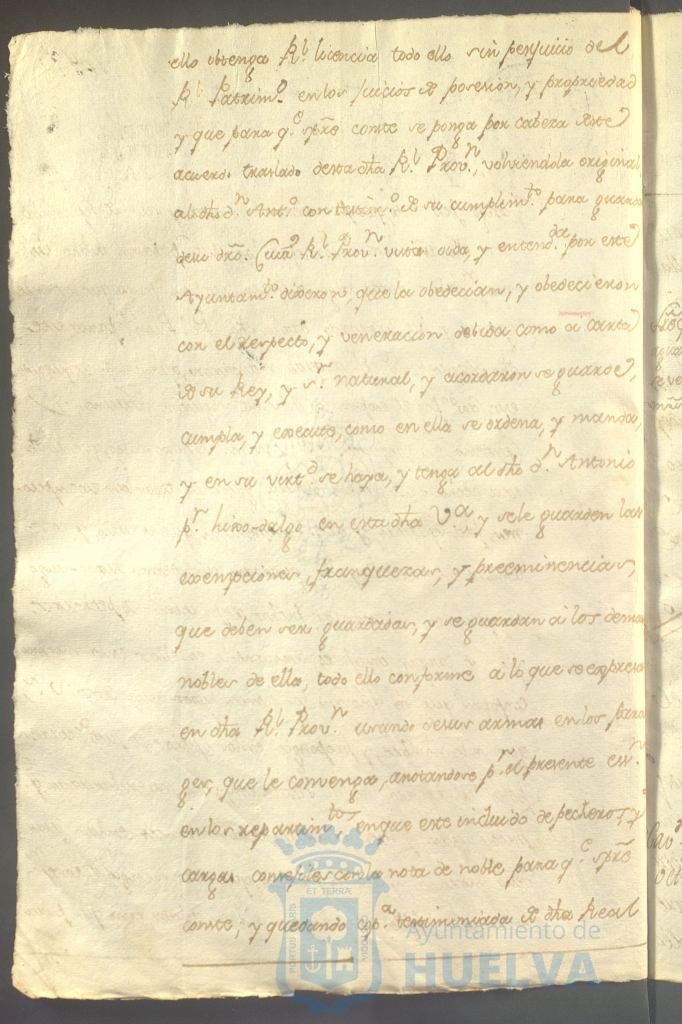 ello obtenga Rl. licencia todo ello sin perjuicio del
Rl. Patrimo. en los Juicios de posesion, y propriedad
y que para qe. spre conste se ponga por cabeza deste
acuerdo traslado desta dha Rl. Provn., volviendola original
al dho dn. Anto. con testimo. de su cumplimto. para guarda
de su dro. Cuia Rl. Provn. vista oida, y entendda. por este
Ayuntamto. dixeron, que la obedecian, y obedecieron
con el respecto, y veneracion debida como a carta
de su Rey, y sr. natural, y acordaron se guarde,
cumpla, y execute, como en ella se ordena, y manda,
y en su virtd. se haya, y tenga al dho dn. Antonio
pr. hixo-dalgo en esta dha Va., y se le guarden las
exempciones, franquezas, y preeminencias,
que deben ser guardadas, y se guardan a los demas
nobles de ella, todo ello conforme a lo que se expresa
en dha Rl. Provn. usando de sus armas en los para
ges, que le convenga, anotandose pr. el presente essn.
en los repartimtos, en que este incluido de pecheros, y
cargas consejles con la nota de noble para qe. spre
conste, y quedando copa. testimoniada de dha Real
PORTUS MARIS
ET TERRÆ
CUSTODIA
Ayuntamiento de
HUELVA